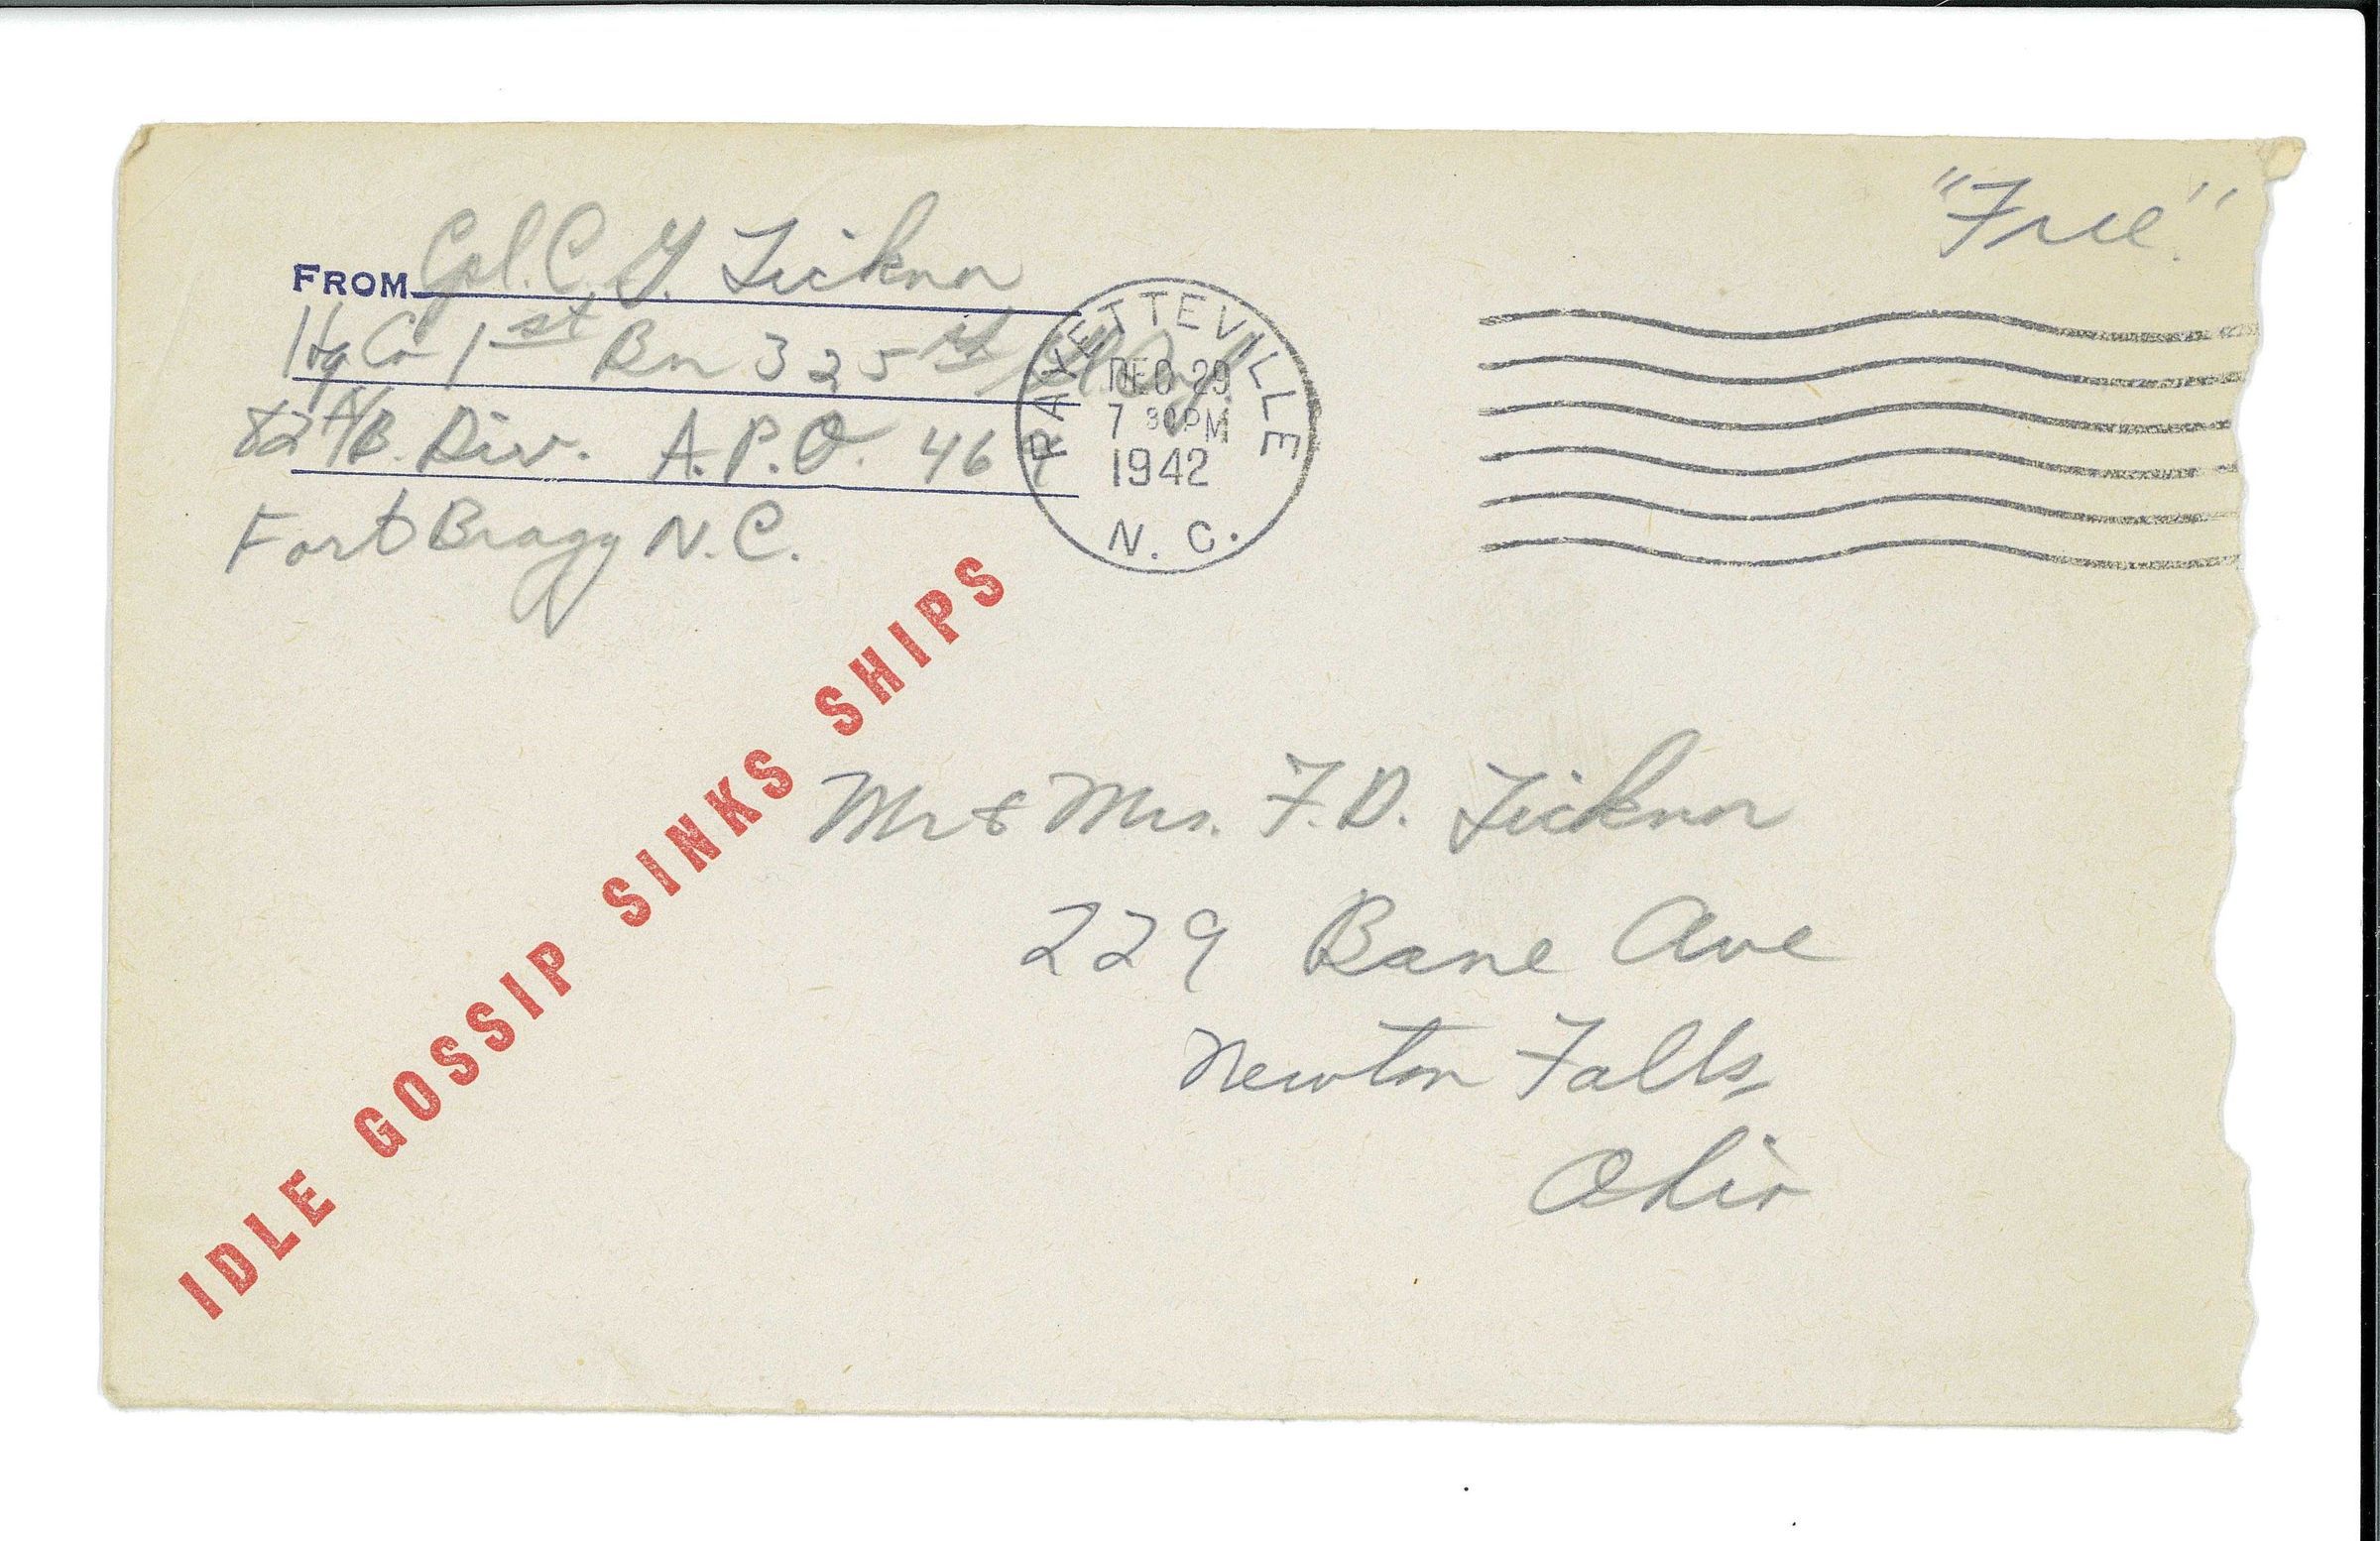 "Free"
FROM Cpl. C. G. Ticknor
Hq Co 1st Bn 325
82 A/B. Div. A.P.O. 469
Fort Bragg N.C.
FAYETTEVILLE
DEC 29
7 30PM
1942
N. C.
IDLE GOSSIP SINKS SHIPS
Mr & Mrs. F.D. Ticknor
229 Bane Ave
Newton Falls,
Ohio